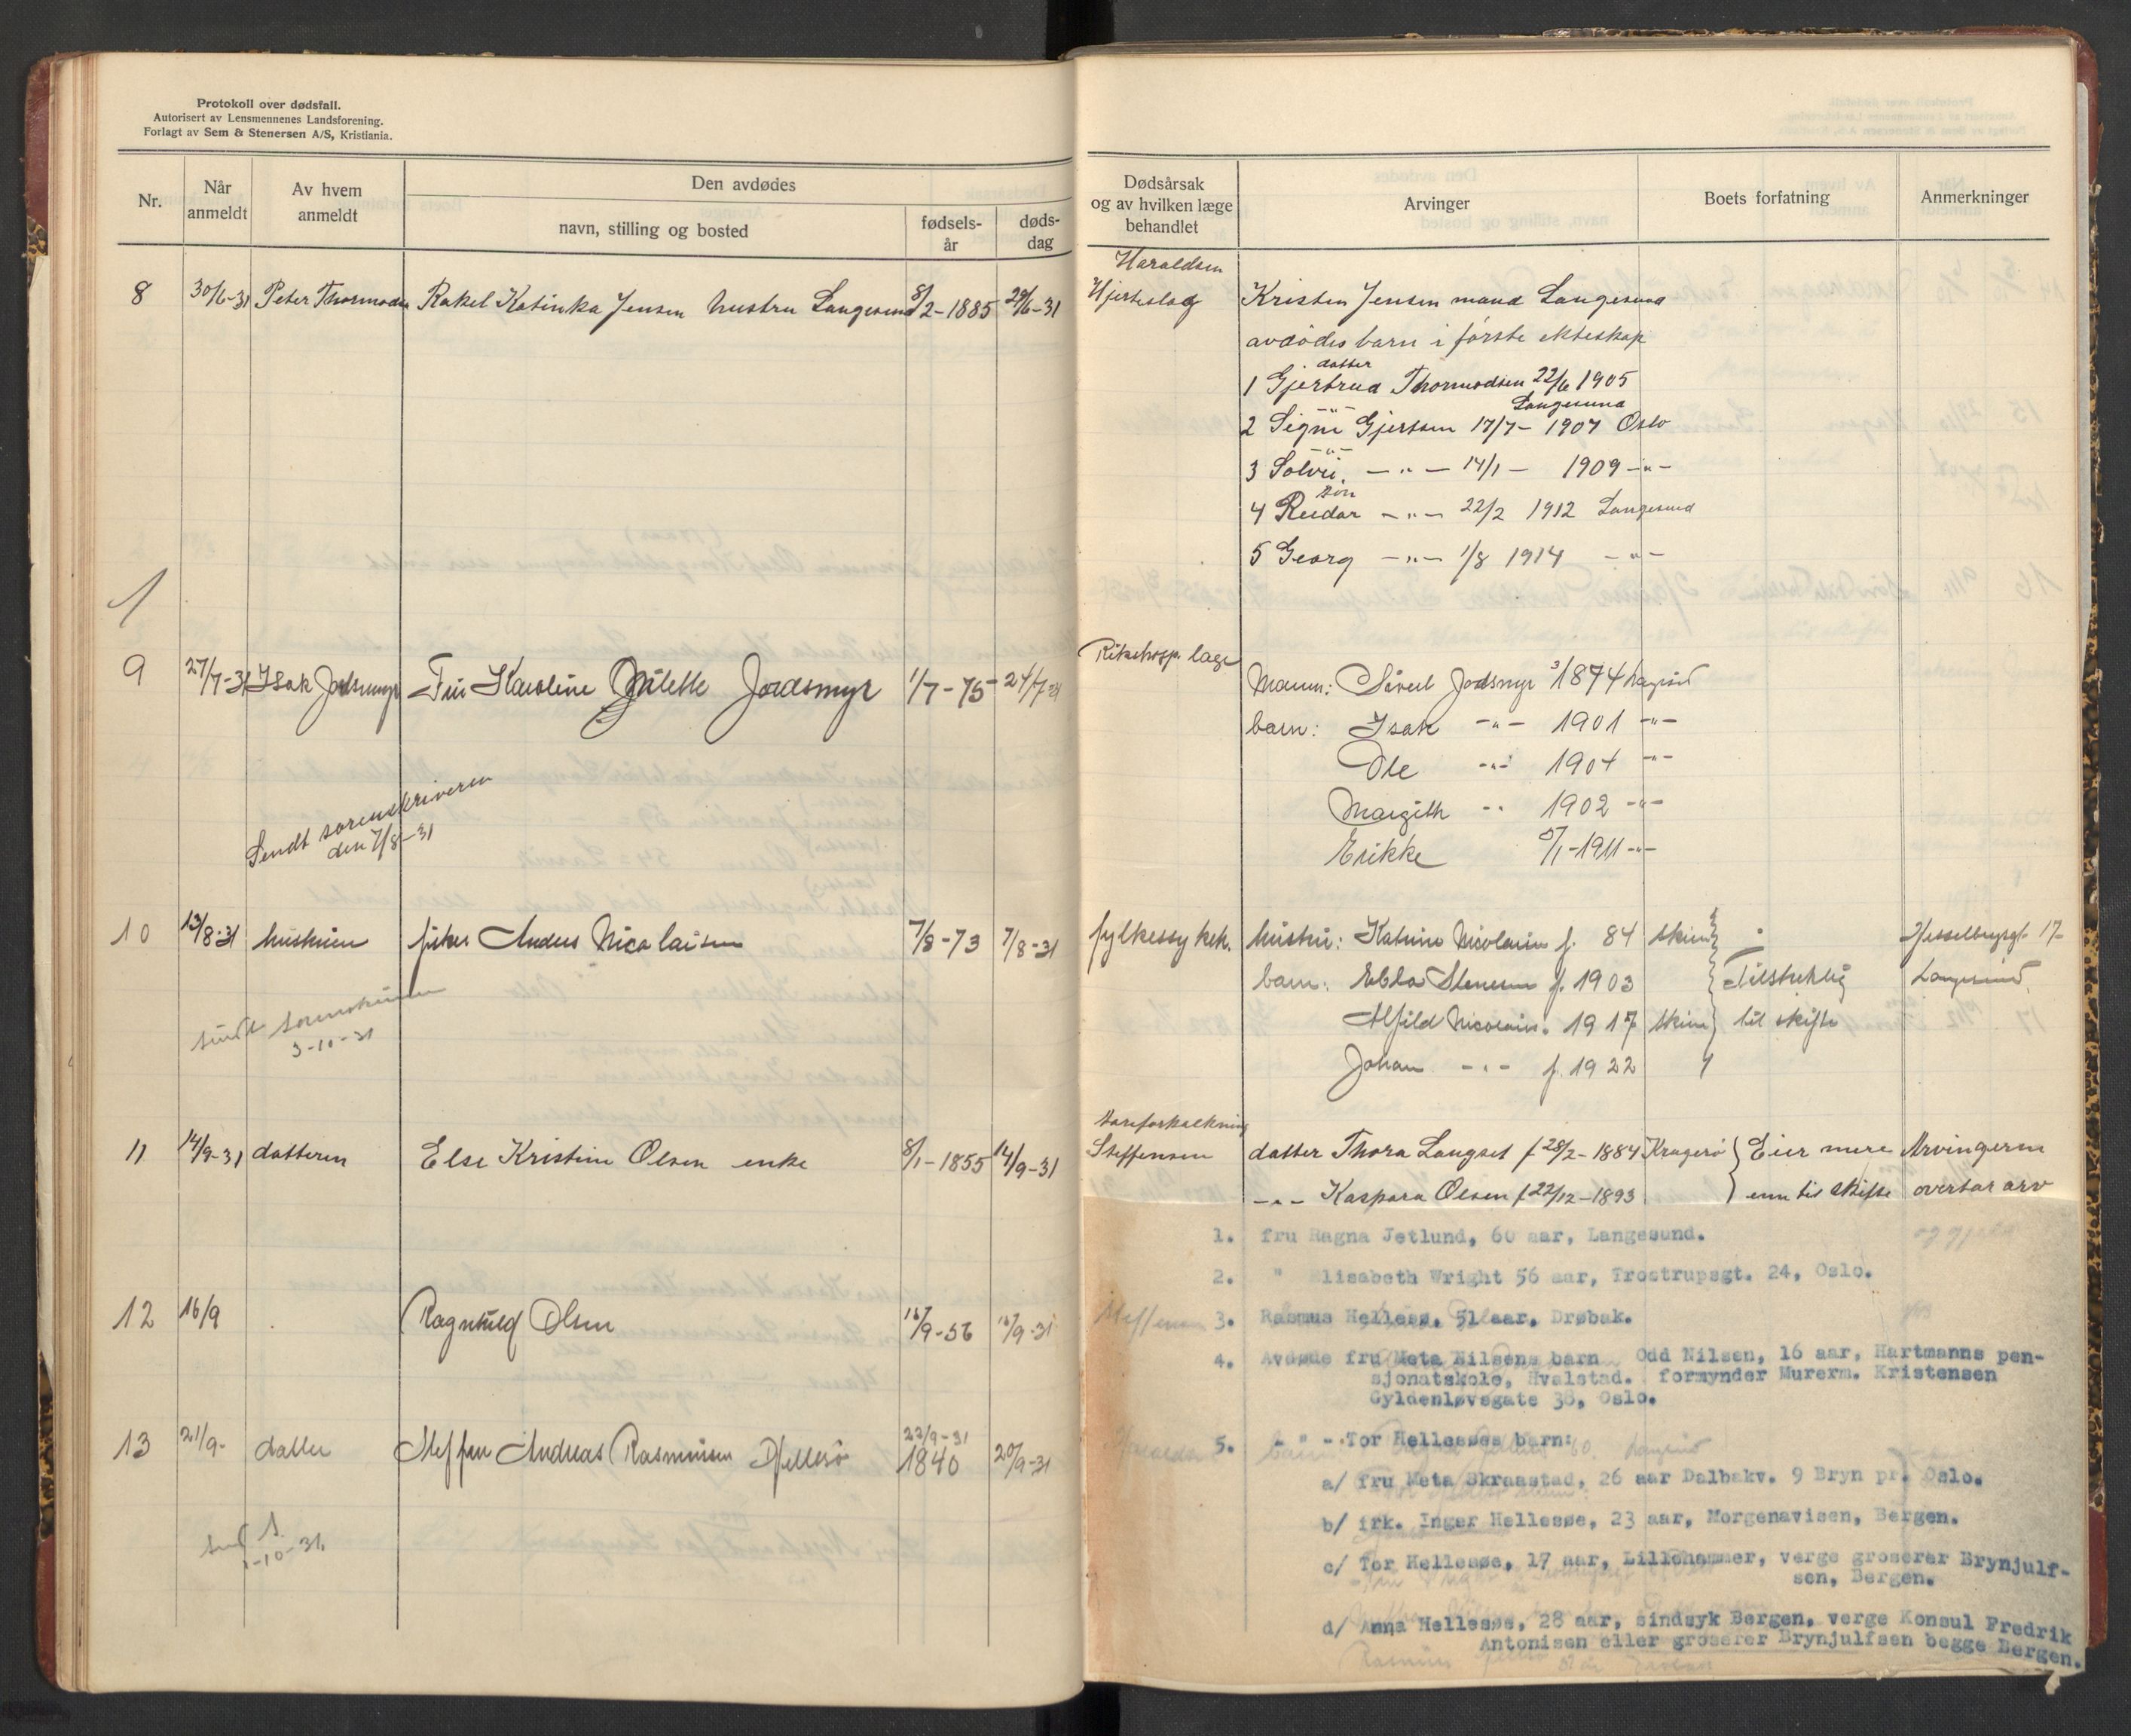 Protokoll over dødsfall.
Autorisert av Lensmennenes Landsforening.
Forlagt av Sem & Stenersen A/S, Kristiania.
Nr.
Når anmeldt
Av hvem anmeldt
Den avdødes
navn, stilling og bosted
fødsels-år
døds-dag
8 30/6-31 Peter Thormodsen Rakel Katinka Jensen hustru Langesund 8/2-1885 29/6-31
9 27/7-31 Isak Jordsmyr Fru Karoline Jordsmyr 1/7-75 24/7
Sendt sorenskriveren
den 7/8-31
10 13/8-31 hustruen fisker Anders Nicolaisen 7/8-73 7/8-31
sendt sorenskriveren
3-10-31
11 14/9-31 datteren Else Kristine Olsen enke 8/1-1855 14/9-31
12 16/9 Ragnhild Olsen 16/9-56 16/9-31
13 21/9- datter Steffen Andreas Rasmussen Hellesö 22/9-31 1840 20/9-31
-10-31
Dødsårsak
og av hvilken læge
behandlet
Arvinger
Boets forfatning
Anmerkninger
Haraldsen
Hjerteslag Kristen Jensen mand Langesund
avdödes barn i förste ekteskap
datter
1 Gjertrud Thormodsen 22/6 1905
Langesund
2 Signe Gjertsen 17/7- 1907 Oslo
3 Solvei -"- 14/1- 1909 -"-
sön
4 Reidar -"- 22/2 1912 Langesund
5 Georg -"- 1/8 1914 -"-
Rikshosp. læge
Mann: Sivert Jordsmyr 1874 Langesund
barn: Isak -"- 1901 -"-
Ole -"- 1904 -"-
Margith " 1902 -"-
Erikke 1911 -"-
fylkessykeh. hustru: Katrine Nicolaisen f. 84 Skien Hesselbergsgt. 17
barn: Ebba Stenersen f. 1903 Tilstrekkelig Langesund.
Alfild Nicolaisen 1917 Skien til skifte
Johan -"- f. 1922
Aareforkalkning
Steffensen datter Thora Langset f 28/2-1884 Kragerö Eier mere Arvingerne
-"- Kaspara Olsen f 22/12-1893 enn til skifte overtar arv
og gjeld
1. fru Ragna Jetlund, 60 aar, Langesund.
2. " Elisabeth Wright 56 aar, Trostrupsgt. 24, Oslo.
Steffensen 3. Rasmus Hellesø, 51 aar, Drøbak.
4. Avdøde fru Meta Nilsens barn Odd Nilsen, 16 aar, Hartmanns pen-
sjonatskole, Hvalstad. formynder Murerm. Kristensen
Gyldenløvsgate 38, Oslo.
5. - " - Tor Hellesøes barn:
a/ fru Meta Skraastad, 26 aar Dalbakv. 9 Bryn pr. Oslo.
b/ frk. Inger Hellesøe, 23 aar, Morgenavisen, Bergen.
c/ Tor Hellesøe, 17 aar, Lillehammer, verge groserer Brynjulf-
sen, Bergen.
d/ Anna Hellesøe, 28 aar, sindsyk Bergen, verge Konsul Fredrik
Antonisen eller groserer Brynjulfsen begge Bergen.